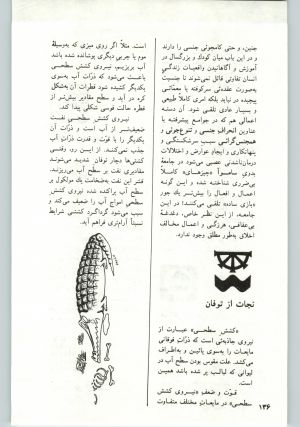 جنین، و حتی کامجوئی جنسی را دارند
و در این باب میان کودک و بزرگسال در
آموزش و آگاهانیدن واقعیات زندگی
انسان تفاوتی قائل نمی‌شوند تا جنسیت
بصورت عقده‌ئی سرکوفته یا معمائی
پیچیده در نیاید بلکه امری کاملا طبیعی
و بسیار عادی تلقی شود. آن دسته
اعمالی هم که در جوامع پیشرفته با
عناوین انحراف جنسی و تنوع‌جوئی و
همجنس‌گرائی سبب سرشکستگی و
پنهانکاری و ایجاد عوارض و اختلالات
درمان‌ناشدنی عصبی می‌شود در جامعهٔ
بدوی ساموآ «چیزهای» کاملا
بی‌ضرری شناخته شده و این گونه
اعمال و افعال را بیش‌تر یک جور
«بازی ساده» تلقی می‌کنند! در این
جامعه، از این نظر خاص، دغدغهٔ
بی‌عفافی، هرزگی و اعمال مخالف
اخلاق به‌طور مطلق وجود ندارد.
نجات از توفان
«کشش سطحی» عبارت از
نیروی جاذبه‌ئی است که ذرّات فوقانی
مایعات را به‌سوی پائین و به‌اطراف
می‌کشد. علت مقوس بودن سطح آب در
لیوانی که لبالب پر شده باشد همین
است.
قوّت و ضعف «نیروی کشش
سطحی» در مایعات مختلف متفاوت
است. مثلا اگر روی میزی که به‌وسیلهٔ
موم یا چربی دیگری پوشانده شده باشد
آب بریزیم، نیروی کشش سطحی
باعث می‌شود که ذرّات آب به‌سوی
یکدیگر کشیده شود قطرات آن به‌شکل
کره در آید و سطح مقادیر بیش‌تر از
قطره حالت قوسی شکلی پیدا کند.
نیروی کشش سطحی نفت
ضعیف‌تر از آب است و ذرّات آب
یکدیگر را با قوت و قدرت ذرات آب
جذب نمی‌کنند. از این رو، وقتی
کشتی‌ها دچار توفان شدید می‌شوند
مقادیری نفت بر سطح آب می‌ریزند.
قشر این نفت به‌ضخامت یک مولکول بر
سطح آب پراکنده شده نیروی کشش
سطحی امواج آب را ضعیف می‌کند و
سبب می‌شود گرداگرد کشتی شرایط
نسبتاً آرام‌تری فراهم آید.
۱۳۶